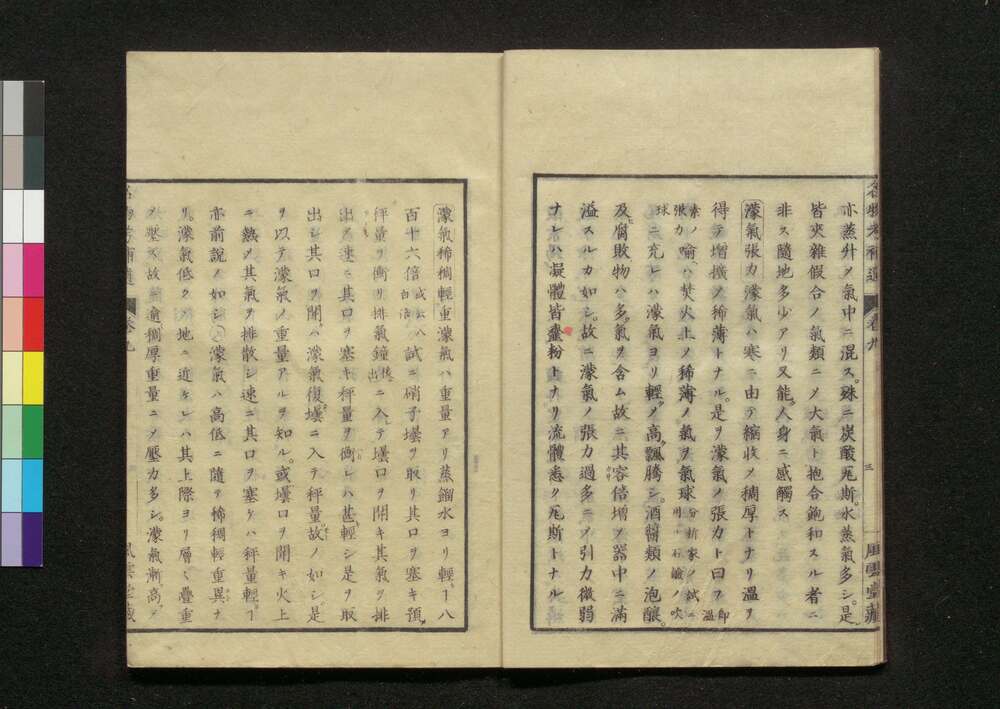 亦蒸升ノ氣中ニ混ス。殊ニ炭酸瓦斯。水蒸氣多シ。是
皆夾雜假合ノ氣類ニメ大氣ト抱合飽和スル者ニ
非ス隨地多少アリ又能人身ニ感觸ス
濛氣張力濛氣ハ寒ニ由テ縮收メ稠厚トナリ溫ヲ
得テ增擴メ稀薄トナル。是ヲ濛氣ノ張力ト曰フ即溫
素ノ張力喻ハ焚火上ノ稀薄ノ氣ヲ氣球分析家ノ試ニ用ル石鹼ノ吹球
ニ充レハ濛氣ヨリ輕メ高ク飄騰シ。酒醬類ノ泡釀
及腐敗物ハ多氣ヲ含ム故ニ其容倍增メ器中ニ滿
溢スルカ如シ。故ニ濛氣ノ張力過多ニメ引力微弱
ナレハ凝體皆虀粉トナリ流體悉ク瓦斯トナル
名物考補遺
卷九
三
風雲堂藏
濛氣稀稠輕重濛氣ハ重量アリ蒸餾水ヨリ輕ヿ八
百十六倍試ニ硝子壜ヲ取リ其口ヲ塞キ預
秤量ヲ衡リ排氣鐘ニ入テ壜口ヲ開キ其氣ヲ排
出メ速ニ其口ヲ塞キ秤量ヲ衡レハ甚輕シ是ヲ取
出シ其口ヲ開ハ濛氣復壜ニ入テ秤量故ノ如シ是
ヲ以テ濛氣ノ重量アルヲ知ル。或壜口ヲ開キ火上
ニ熱メ其氣ヲ排散シ速ニ其口ヲ塞ケハ秤量輕ヿ
亦前說ノ如シ濛氣ハ高低ニ隨テ稀稠輕重異ナ
リ。濛氣低ク地ニ近ケレハ其上際ヨリ層々疊重
メ壓ス故ニ逾稠厚重量ニメ壓力多シ。濛氣漸高